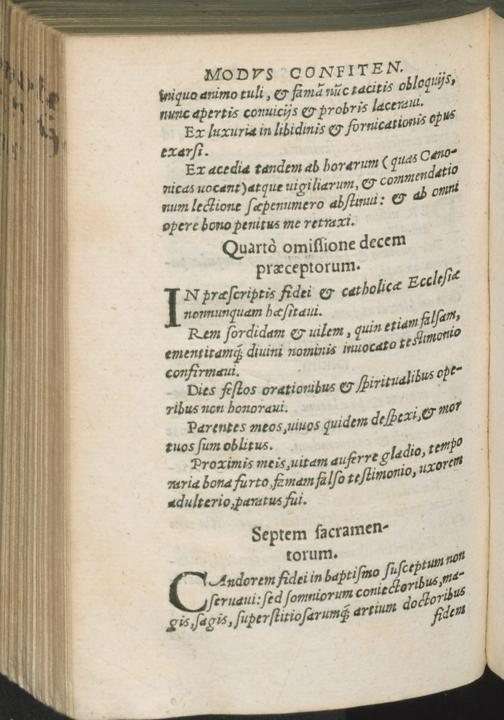 MODVS CONFITEN.
iniquo animo tuli, & famã nũc tacitis obloquijs,
nunc apertis conuicijs & probris laceraui.
Ex luxuria in libidinis & fornicationis opus
exarsi.
Ex acedia tandem ab horarum (quas Cano-
nicas uocant) atque uigiliarum, & commendatio
num lectione sæpenumero abstinui: & ab omni
opere bono penitus me retraxi.
Quartò omissione decem
præceptorum.
IN præscriptis fidei & catholicæ Ecclesiæ
nonnunquam hæsitaui.
Rem sordidam & uilem, quin etiam falsam,
ementitamq́; diuini nominis inuocato testimonio
confirmaui.
Dies festos orationibus & spiritualibus ope-
ribus non honoraui.
Parentes meos, uiuos quidem despexi, & mor
tuos sum oblitus.
Proximis meis, uitam auferre gladio, tempo
raria bona furto, famam falso testimonio, uxorem
adulterio, paratus fui.
Septem sacramen-
torum.
CAndorem fidei in baptismo susceptum non
seruaui: sed somniorum coniectoribus, ma-
gis, sagis, superstitiosarumq́; artium doctoribus
fidem